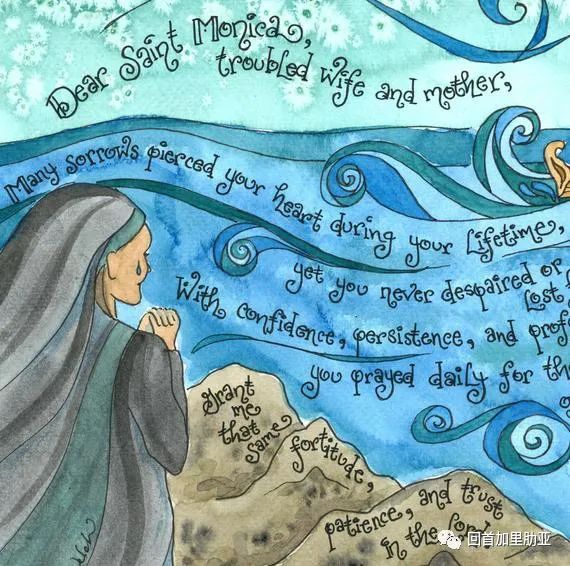 Dear Saint Monica,
troubled wife and mother,
Many sorrows pierced your heart during your lifetime,
yet you never despaired or
Lost
With confidence, persistence, and
you prayed daily for
Grant
me
that
same
fortitude,
patience, and trust
in the Lord!
回首加里肋亚